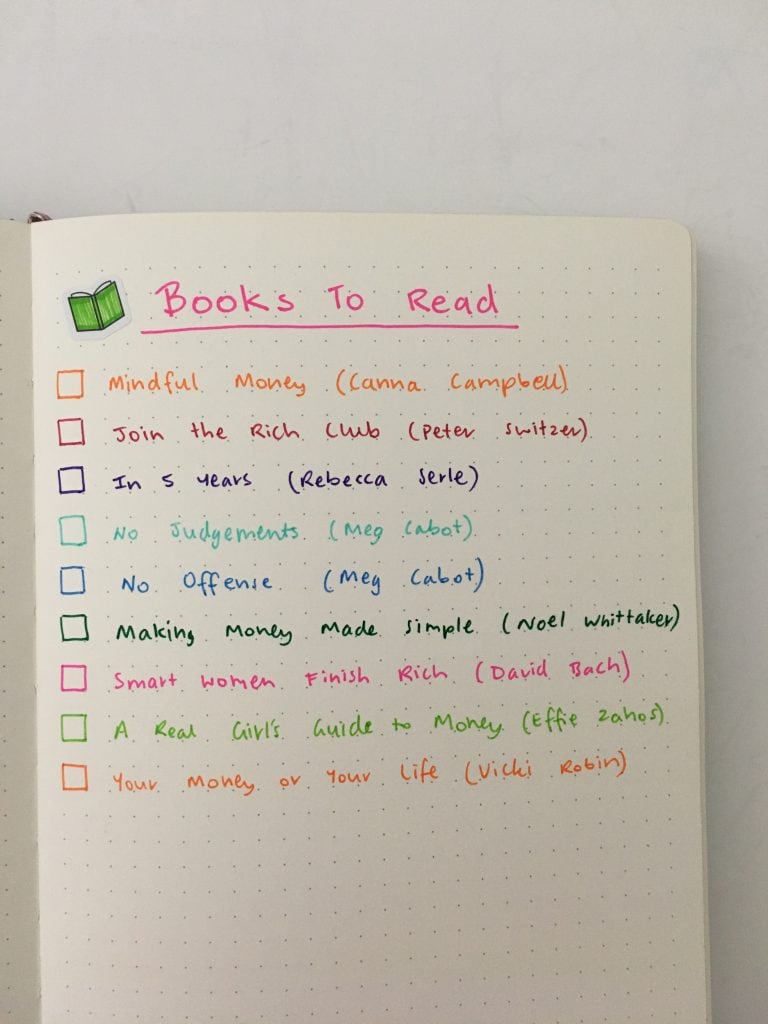 Books To Read
Mindful Money (Canna Campbell)
Join the Rich Club (Peter Switzer)
In 5 years (Rebecca Serle)
No Judgements (Meg Cabot)
No Offense (Meg Cabot)
Making Money Made Simple (Noel Whittaker)
Smart Women Finish Rich (David Bach)
A Real Girl's Guide to Money (Effie Zahos)
Your Money or Your Life (Vicki Robin)